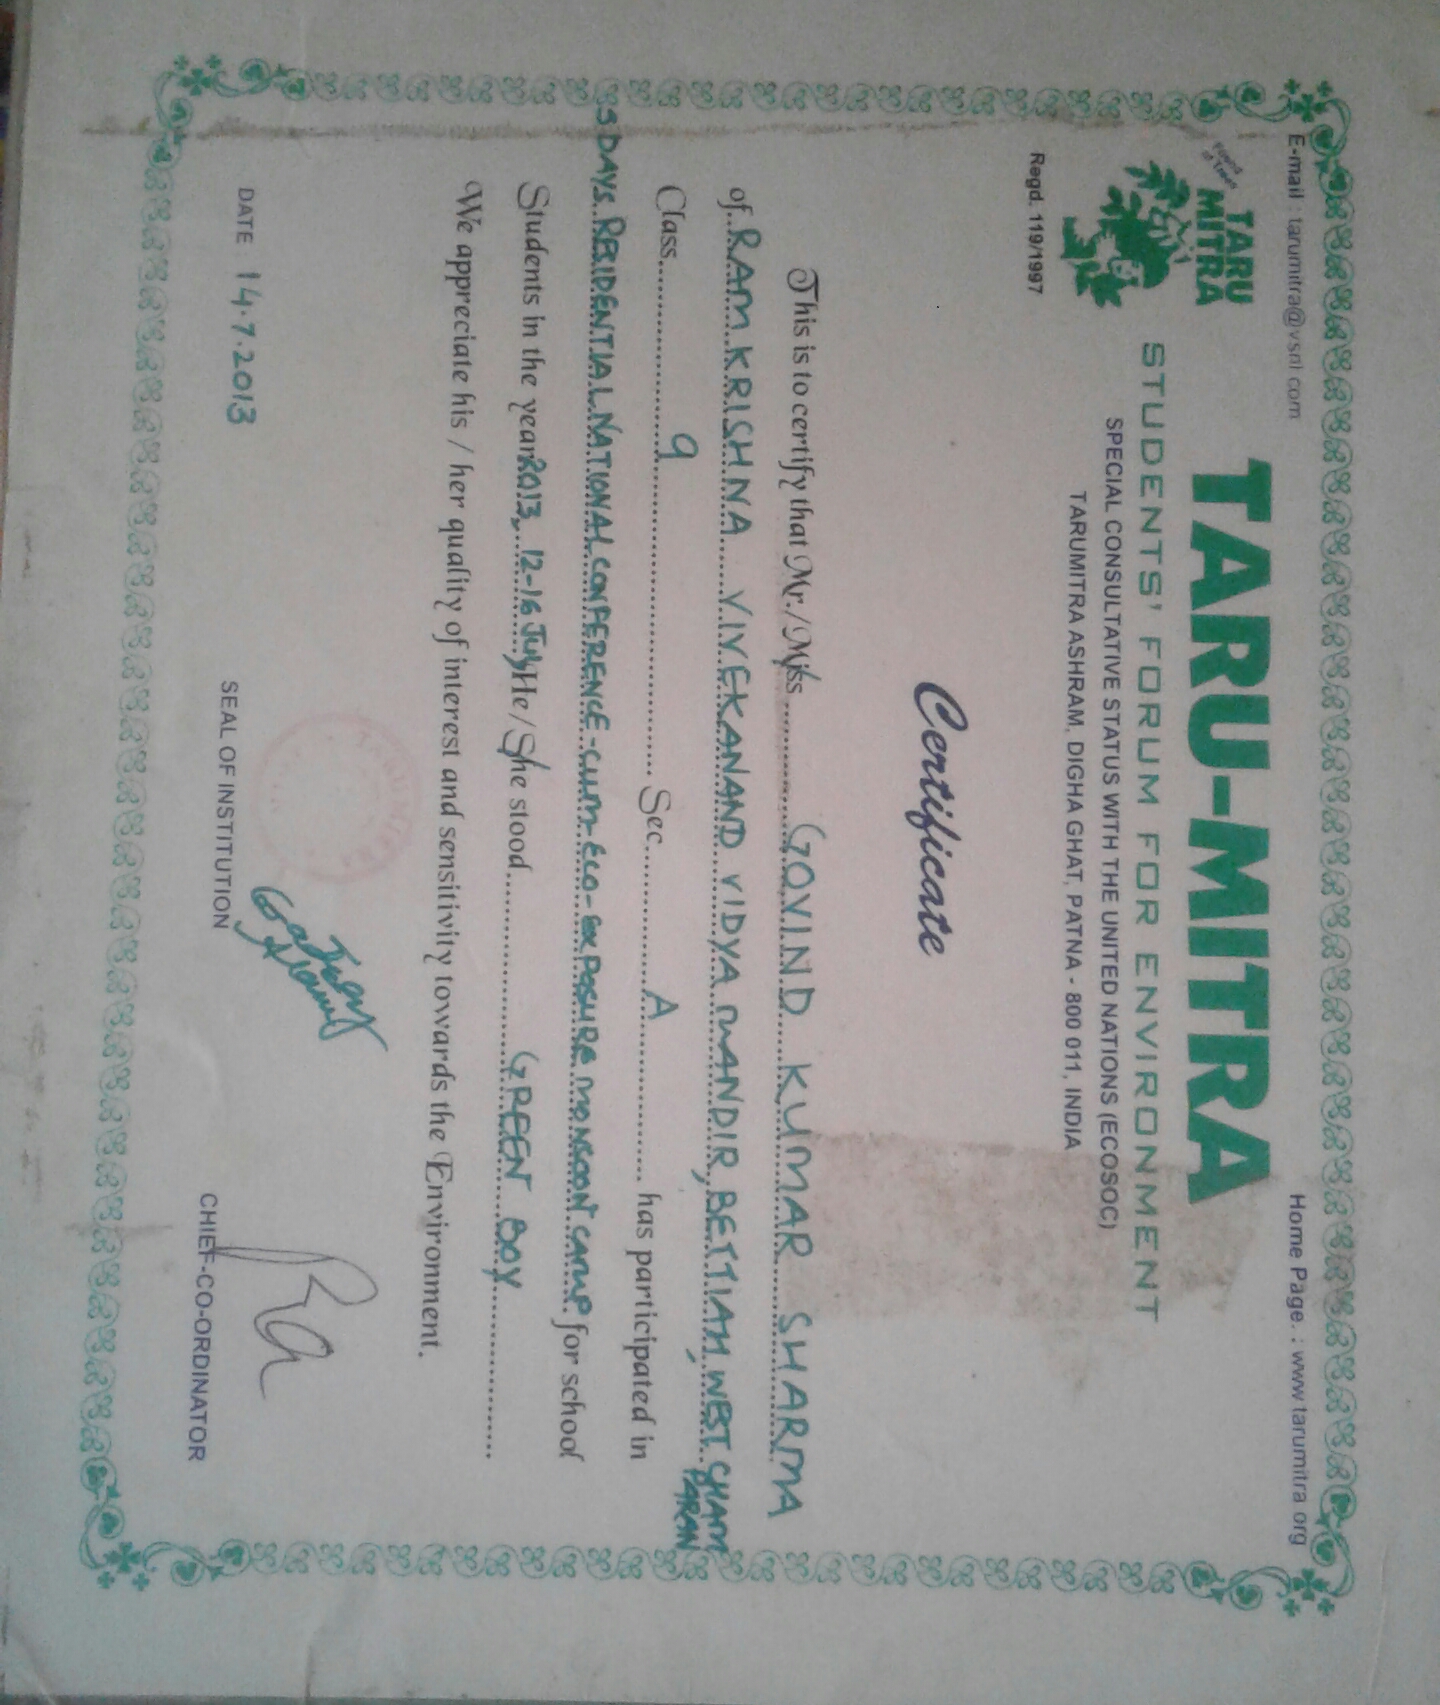 E-mail : tarumitra@vsnl.com
Home Page. : www.tarumitra.org
Friend of Trees
TARU
MITRA
Regd. 119/1997
TARU-MITRA
STUDENTS' FORUM FOR ENVIRONMENT
SPECIAL CONSULTATIVE STATUS WITH THE UNITED NATIONS (ECOSOC)
TARUMITRA ASHRAM, DIGHA GHAT, PATNA - 800 011, INDIA
Certificate
This is to certify that Mr./Miss GOVIND KUMAR SHARMA
of RAMKRISHNA VIVEKANAND VIDYA MANDIR, BETTIAH, WEST CHAM
PARAN
Class 9 Sec. A has participated in
5 DAYS RESIDENTIAL NATIONAL CONFERENCE-CUM-ECO-EXPOSURE MONSOON CAMP for school
Students in the year 2013, 12-16 July He/She stood GREEN BOY
We appreciate his / her quality of interest and sensitivity towards the Environment.
TARUMITRA
DATE 14.7.2013
SEAL OF INSTITUTION
CHIEF-CO-ORDINATOR